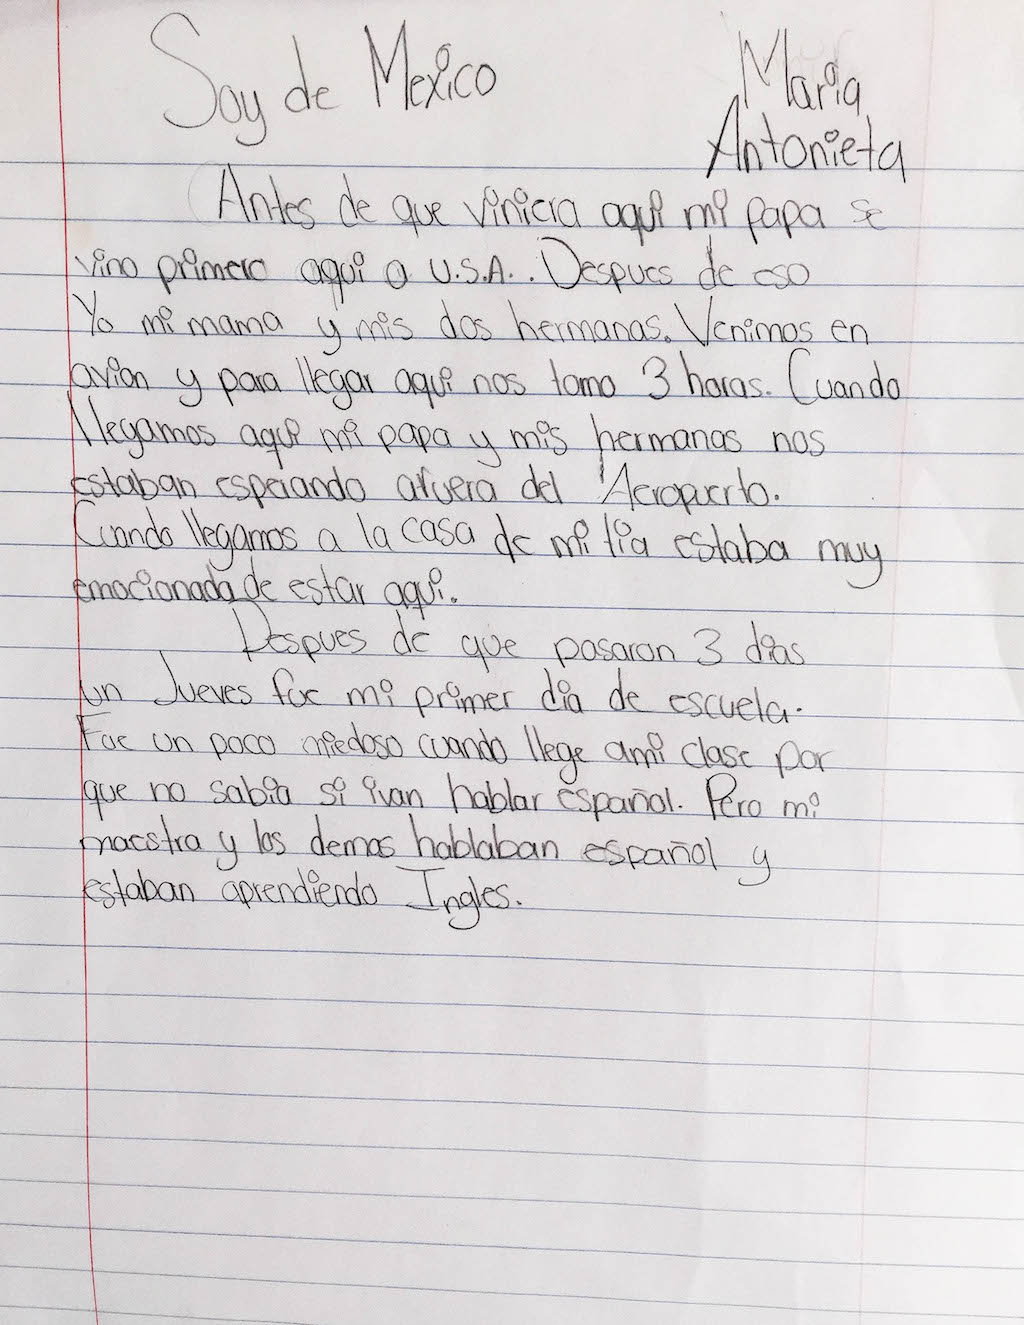 Soy de Mexico
Maria
Antonieta
Antes de que viniera aqui mi papa se
vino primero aqui a U.S.A.. Despues de eso
Yo mi mama y mis dos hermanas. Venimos en
avion y para llegar aqui nos tomo 3 horas. Cuando
llegamos aqui mi papa y mis hermanas nos
estaban esperando afuera del Aeropuerto.
Cuando llegamos a la casa de mi tia estaba muy
emocionada de estar aqui.
Despues de que pasaran 3 dias
un Jueves fue mi primer dia de escuela.
Fue un poco miedoso cuando llege ami clase por
que no sabia si ivan hablar español. Pero mi
maestra y los demas hablaban español y
estaban aprendiendo Ingles.